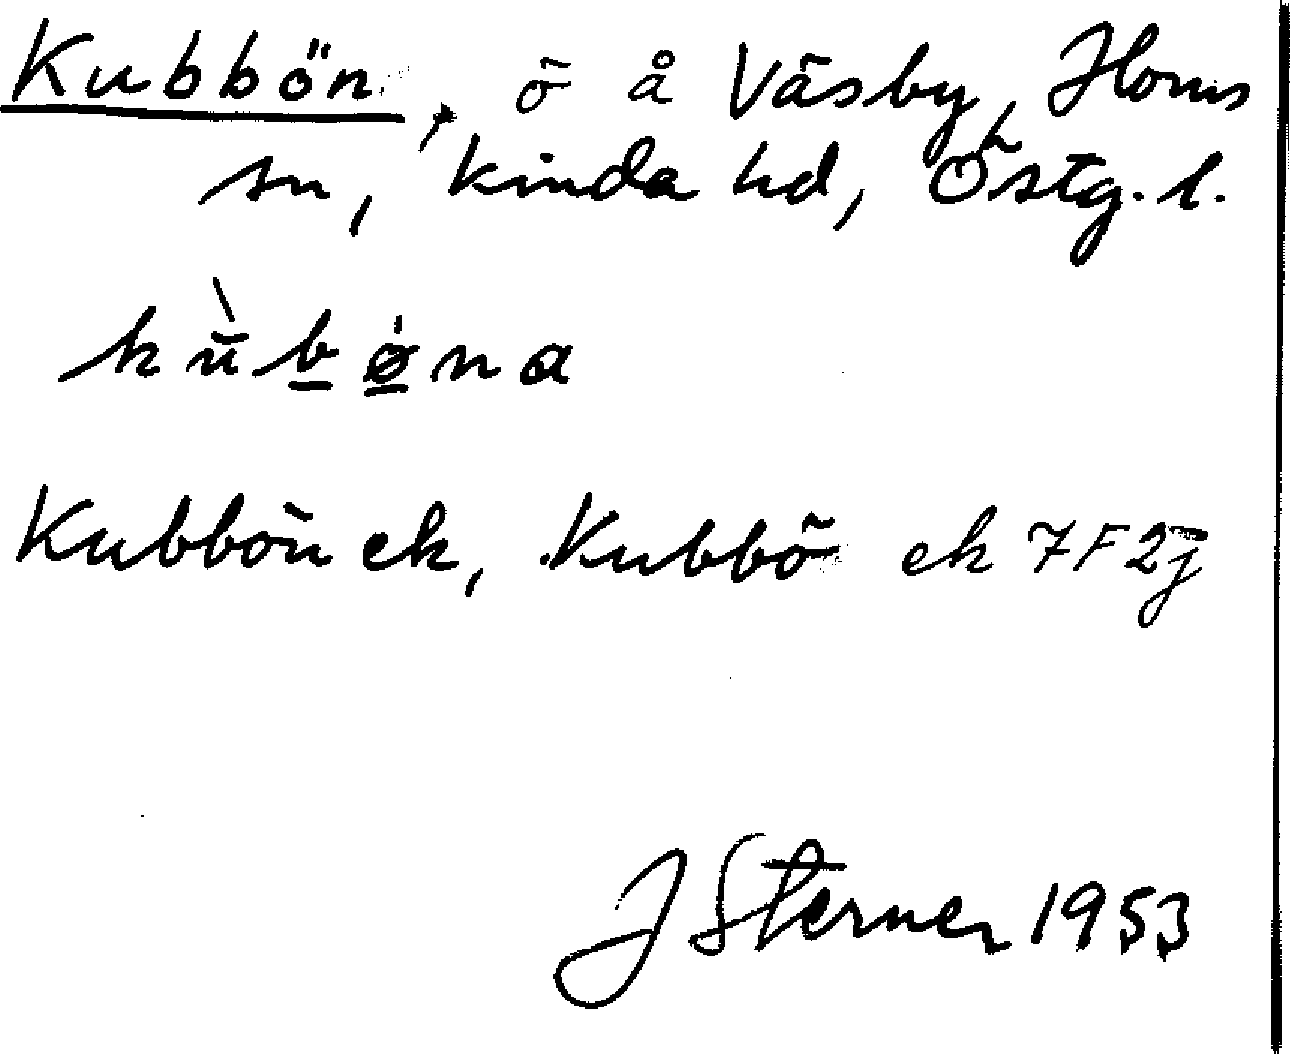 Kubbön, ö å Väsby, Horns
sn, Kinda hd, Östg. l.
kùbøna
Kubbön ek, Kubbö ek 7F2j
J Sterner 1953